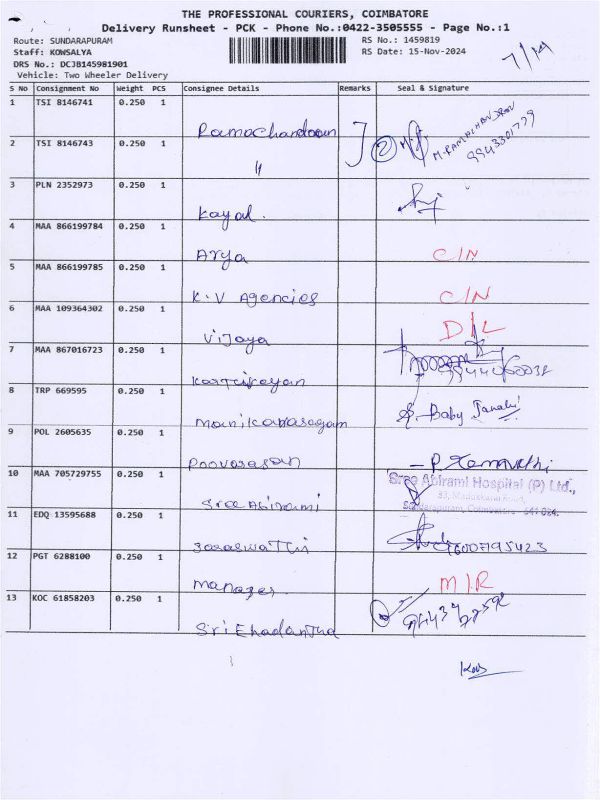 THE PROFESSIONAL COURIERS, COIMBATORE
Delivery Runsheet - PCK - Phone No.:0422-3505555 - Page No.:1
Route: SUNDARAPURAM RS No.: 1459819
Staff: KOWSALYA RS Date: 15-Nov-2024
DRS No.: DCJB145981901
Vehicle: Two Wheeler Delivery
7/19
S No Consignment No Weight PCS Consignee Details Remarks Seal & Signature
1 TSI 8146741 0.250 1 Ramachandran
M. RAMACHANDRAN
2 TSI 8146743 0.250 1 〃 2
3 PLN 2352973 0.250 1 Kayal.
4 MAA 866199784 0.250 1 Arya C/N
5 MAA 866199785 0.250 1 K.V Agencies C/N
6 MAA 109364302 0.250 1 Vijaya D/L
7 MAA 867016723 0.250 1 Karthikeyan
8 TRP 669595 0.250 1 Manikavasagam S. Baby Janaki
9 POL 2605635 0.250 1 Poovarasan
10 MAA 705729755 0.250 1 Sree Abirami Sree Abirami Hospital (P) Ltd.,
33, Madukkarai Road,
Sundarapuram, Coimbatore - 641 024.
11 EDQ 13595688 0.250 1 Saraswathi 9600795423
12 PGT 6288100 0.250 1 Manager. M/R
13 KOC 61858203 0.250 1 Sri Ehadantha